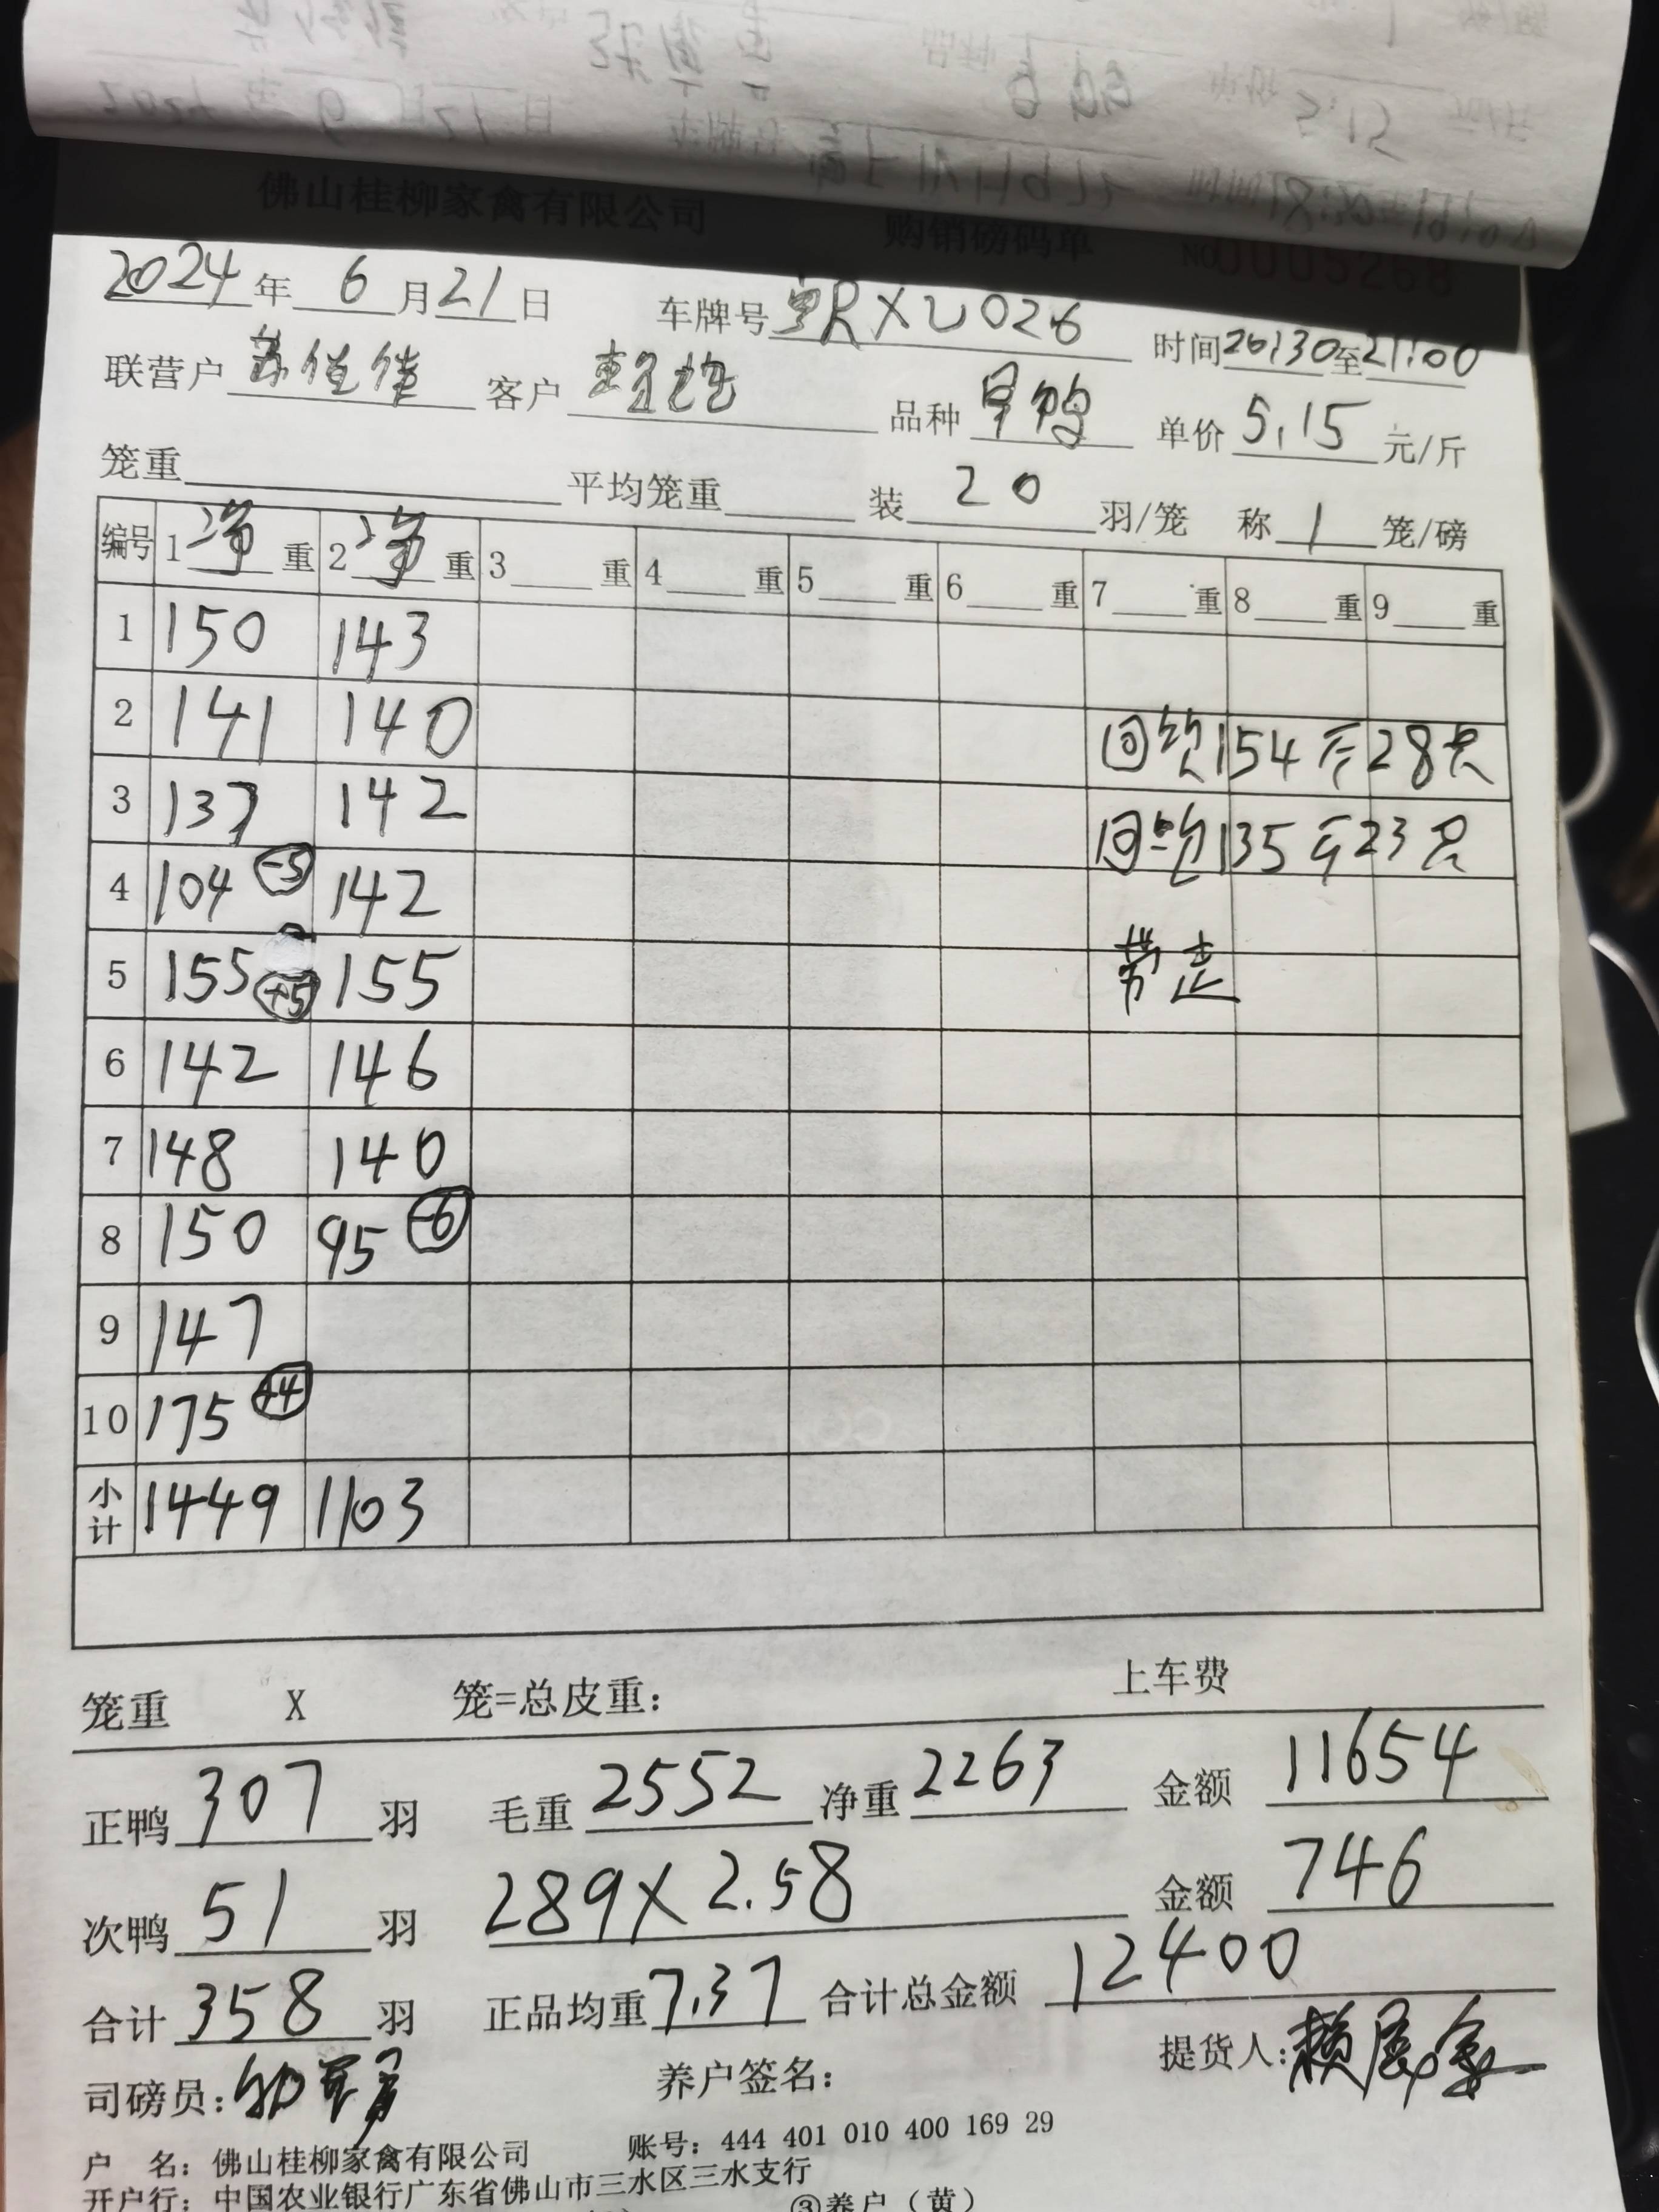 佛山桂柳家禽有限公司 购销磅码单 NO 0005268
2024年 6 月 21 日 车牌号 粤RXU026 时间 20:30 至 21:00
联营户 客户 品种 单价 5.15 元/斤
笼重 平均笼重 装 20 羽/笼 称 1 笼/磅
编号 1 净 重 2 净 重 3 重 4 重 5 重 6 重 7 重 8 重 9 重
1 150 143
2 141 140 回 154 斤 28只
3 137 142 回 135 斤 23只
4 104 -5 142
5 155 +5 155 带走
6 142 146
7 148 140
8 150 95 -6
9 147
10 175 +4
小计 1449 1103
笼重 X 笼=总皮重： 上车费
正鸭 307 羽 毛重 2552 净重 2263 金额 11654
次鸭 51 羽 289X2.58 金额 746
合计 358 羽 正品均重 7.37 合计总金额 12400
司磅员： 养户签名： 提货人：
户 名：佛山桂柳家禽有限公司 账号：444 401 010 400 169 29
开户行：中国农业银行广东省佛山市三水区三水支行
③养户（黄）